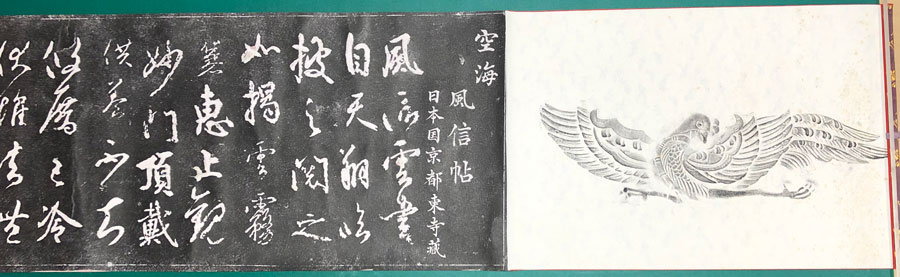 空海
風信帖
日本国京都東寺藏
風信雲書
自天翔臨
披之閲之
如揭雲霧
兼惠止観
妙門頂戴
供養不知
攸厝已冷
伏惟